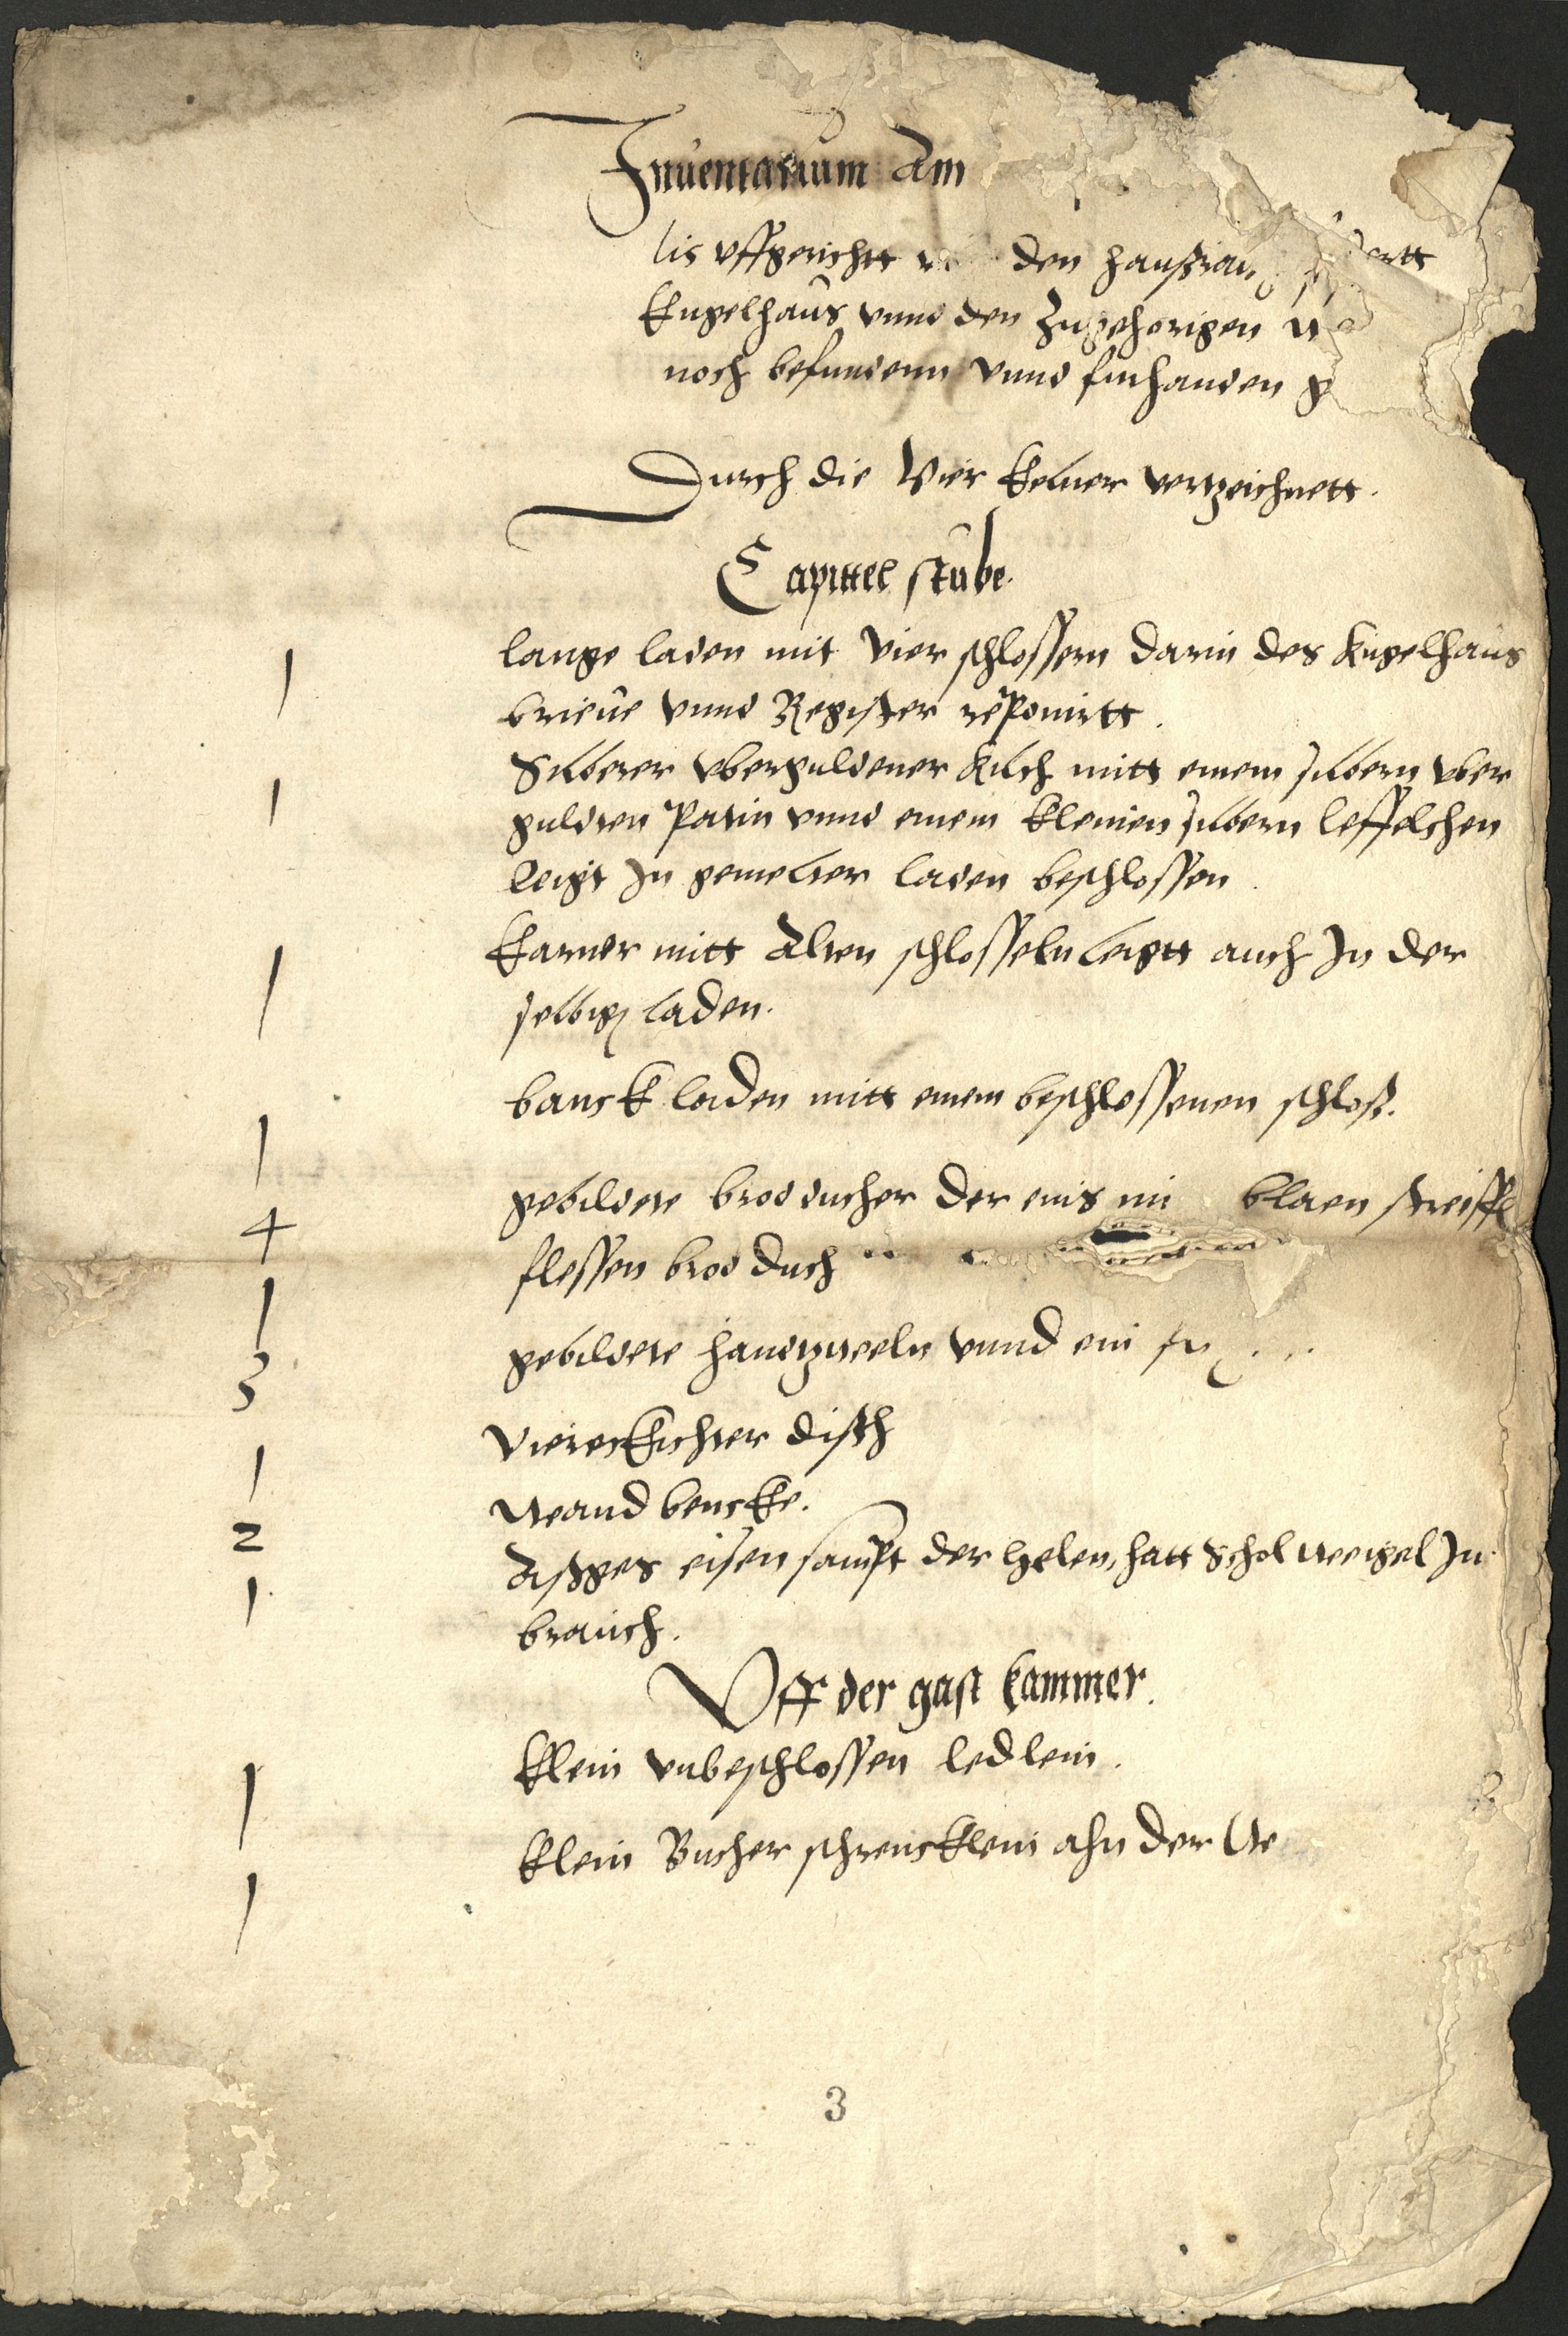 Inuentarium Am
lis vffgericht den haußrau
Kugelhaus vnnd den Zugehorigen
noch befundenn vnnd furhanden g
Durch die Vier Kelner vertzeichnett.
Capittel stube.
1 lange laden mit Vier schlossern darin des Kugelhaus
brieue vnnd Register reponirtt.
1 Silberer vberguldener Kilch mitt einem silbern vber
guldten Patin vnnd einem kleinen silbern leffelchen
leigt In gemelter laden beschlossen.
1 Karner mitt Alten schlosseln leigtt auch In der
selbigen laden.
1 banck laden mitt einem beschlossenen schloß.
4 gebildete brodducher der eins mi blaen streiffe
1 flessen brodduch
3 gebildete handtzweeln vnnd ein
1 Viereckichter disch
2 wand bencke.
1 eisen sampt der helen, hatt Scholweigel In
brauch.
Vff der gast kammer.
1 klein vnbeschlossen ledlein.
1 klein Bucher schrencklein ahn der We
3